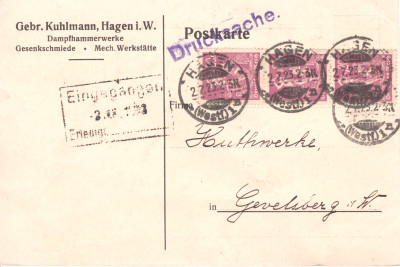 Gebr. Kuhlmann, Hagen i. W.
Dampfhammerwerke
Gesenkschmiede • Mech. Werkstätte
Postkarte
Drucksache.
HAGEN
2.7.23.2-3N.
(Westf) 1
HAGEN
2.7.23.2-3N.
(Westf) 1
HAGEN
2.7.23.2-3N.
(Westf) 1
Eingegangen
Erledigt
Firma
Huthwerke,
in Gevelsberg i. W.